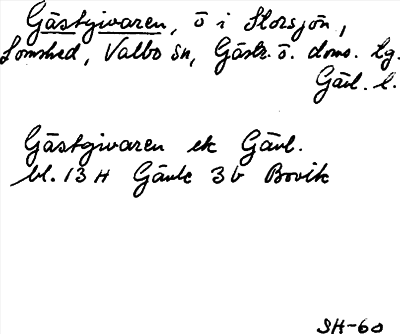 Gästgivaren, ö i Storsjön,
Valbo sn, Gästr. ö. doms. lg.
Gävl. l.
Gästgivaren ek Gävl.
bl. 13 H Gävle 3 b Bovik
SH-60